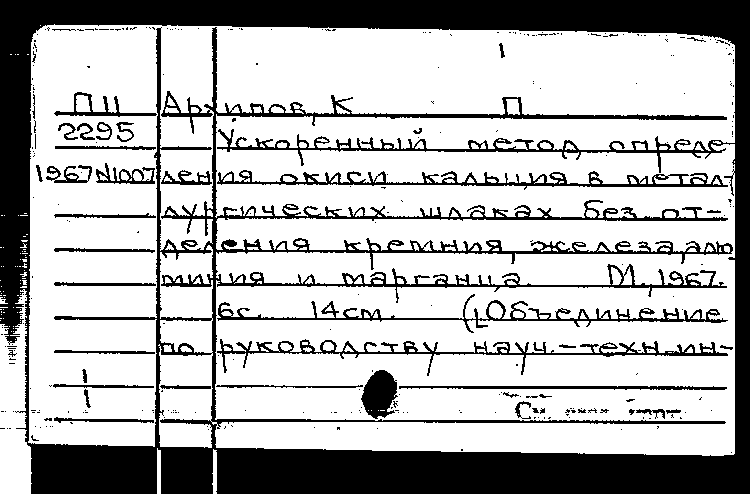 П11 Архипов, К П
2295 Ускоренный метод опреде-
1967N1007 ления окиси кальция в метал-
лургических шлаках без от-
деления кремния, железа, алю
миния и марганца. М., 1967.
6с. 14см. (Объединение
по руководству науч.-техн.ин-
См.